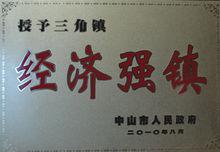 授予三角镇
经济强镇
中山市人民政府
二〇一〇年八月